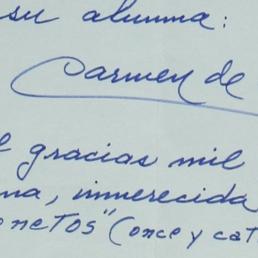 su alumna:
Carmen de
gracias mil
na, inmerecida
onetos" (once y cat